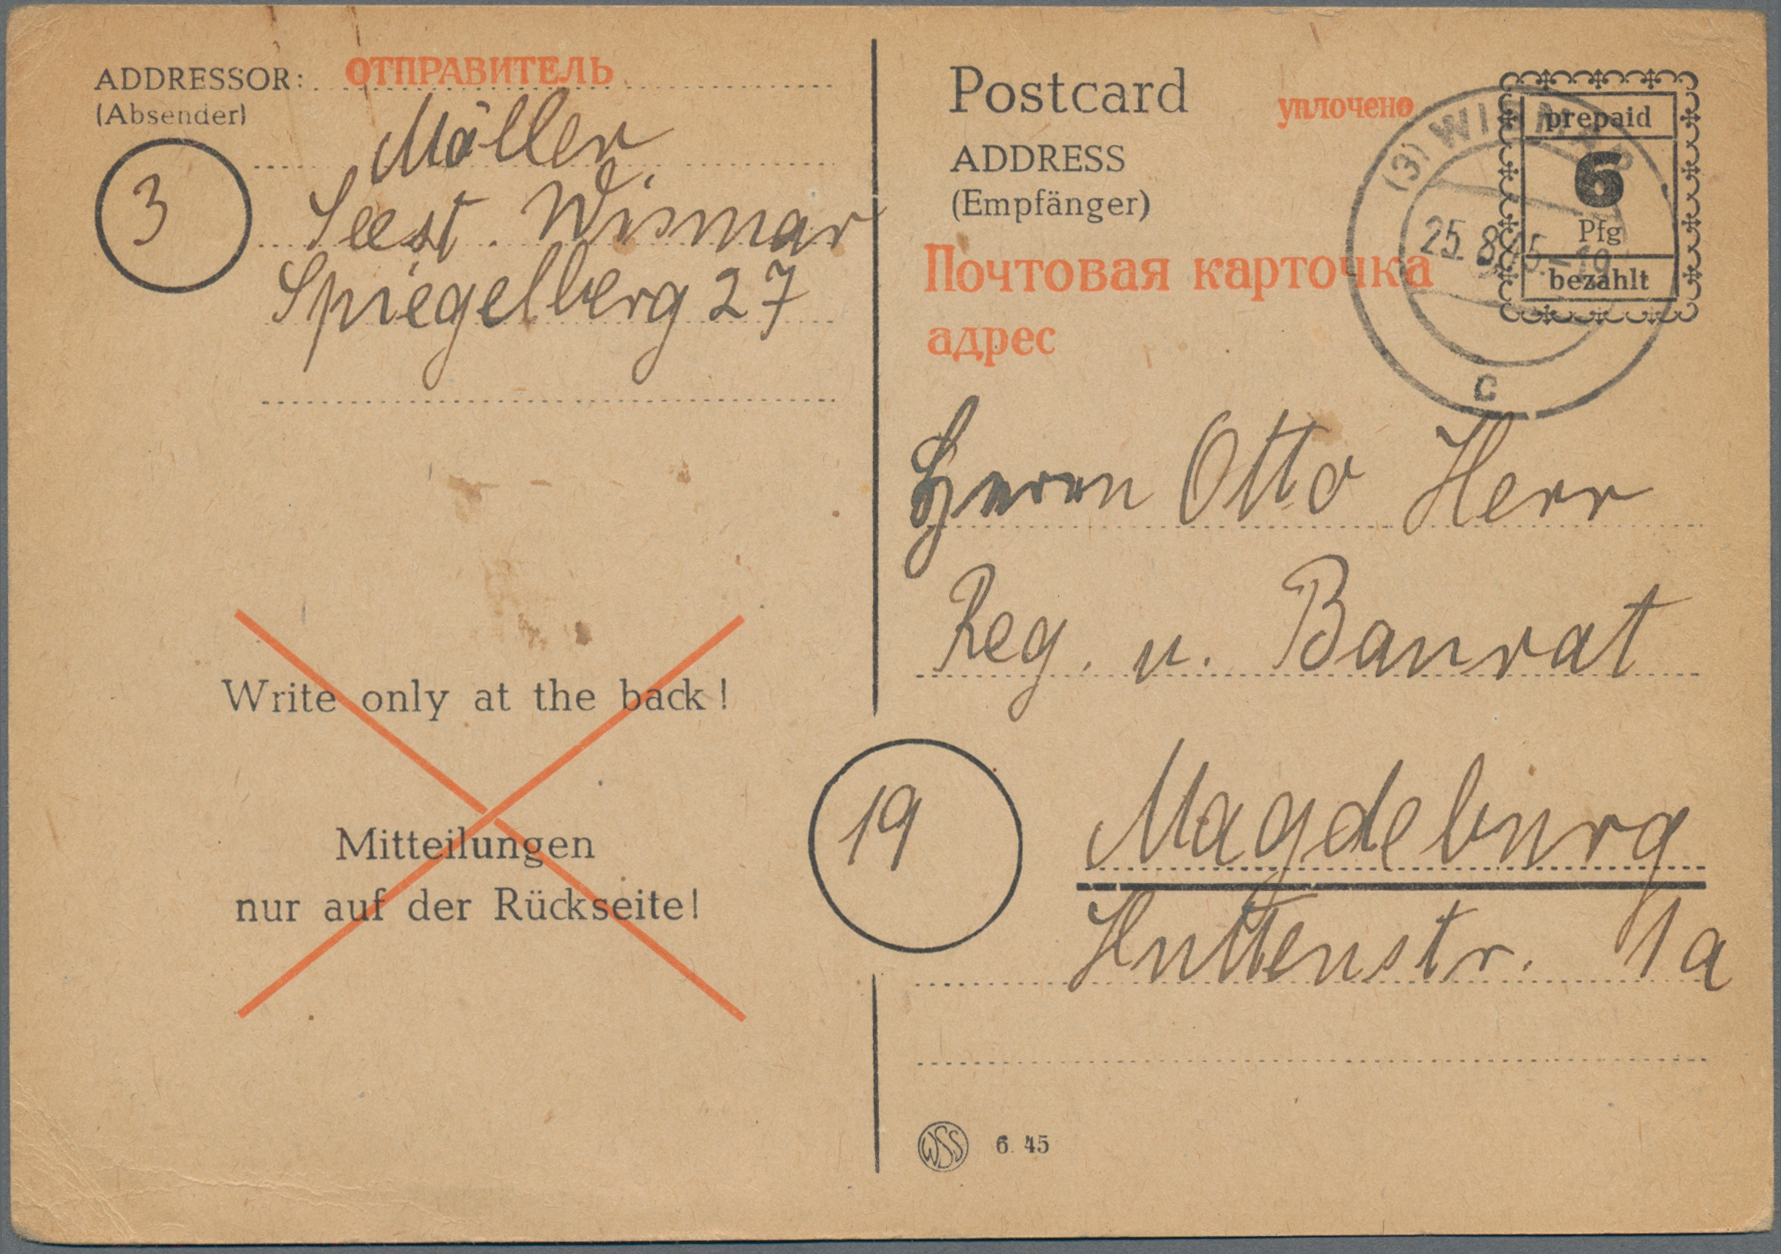 ADDRESSOR: ОТПРАВИТЕЛЬ
(Absender)
Möller
3
Seest. Wismar
Spiegelberg 27
Write only at the back!
Mitteilungen
nur auf der Rückseite!
Postcard
уплочено
ADDRESS
(Empfänger)
Почтовая карточка
адрес
prepaid
6
Pfg
bezahlt
(3) WISMAR
25.8.45.-19
c
Herrn Otto Herr
Reg. u. Baurat
19
Magdeburg
Huttenstr. 1a
WSS 6. 45